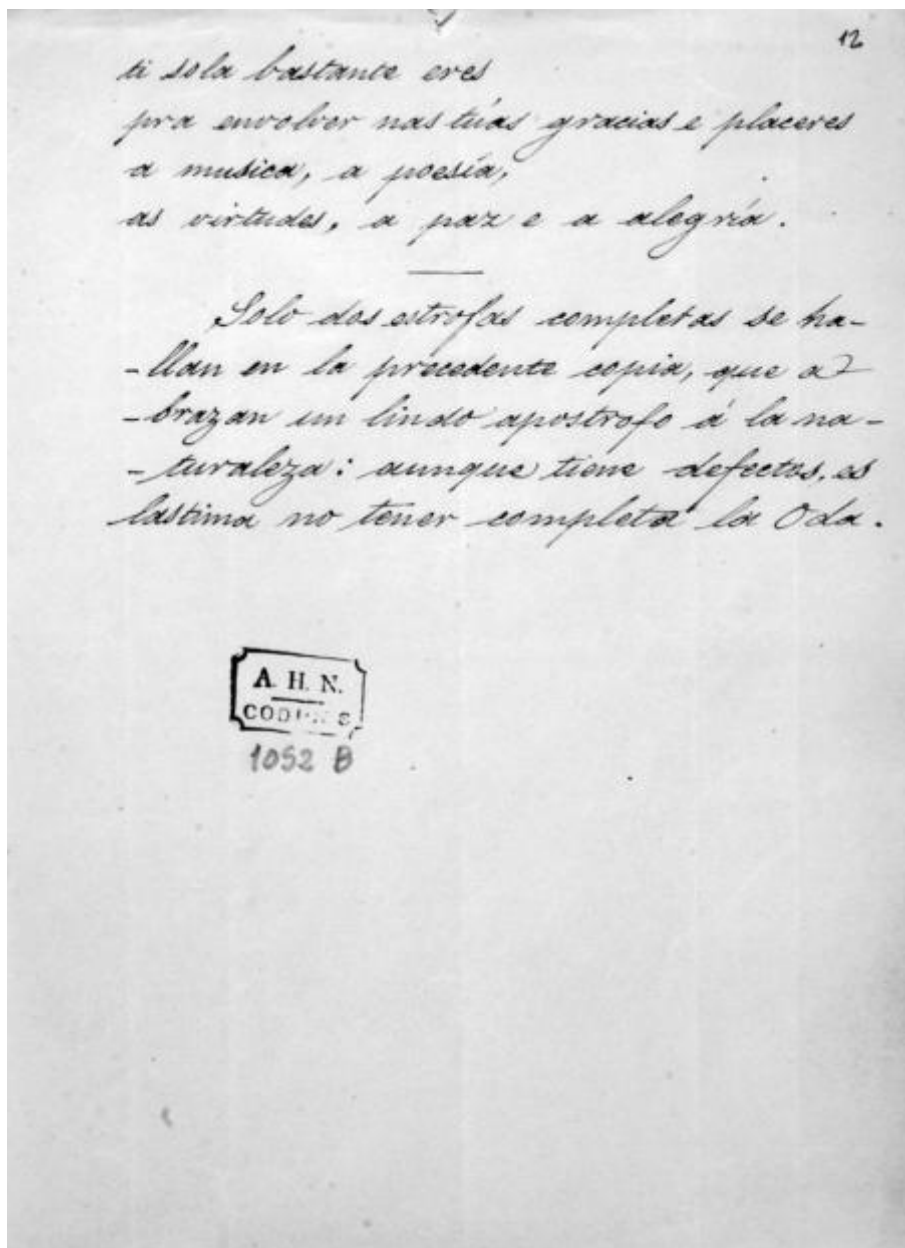 12
ti sola bastante eres
pra envolver nas túas gracias e placeres
a musica, a poesía,
as virtudes, a paz e a alegría.
Solo dos estrofas completas se ha-
-llan en la precedente copia, que a-
-brazan un lindo apostrofo á la na-
-turaleza: aunque tiene defectos, es
lastima no tener completa la Oda.
A. H. N.
1052 B